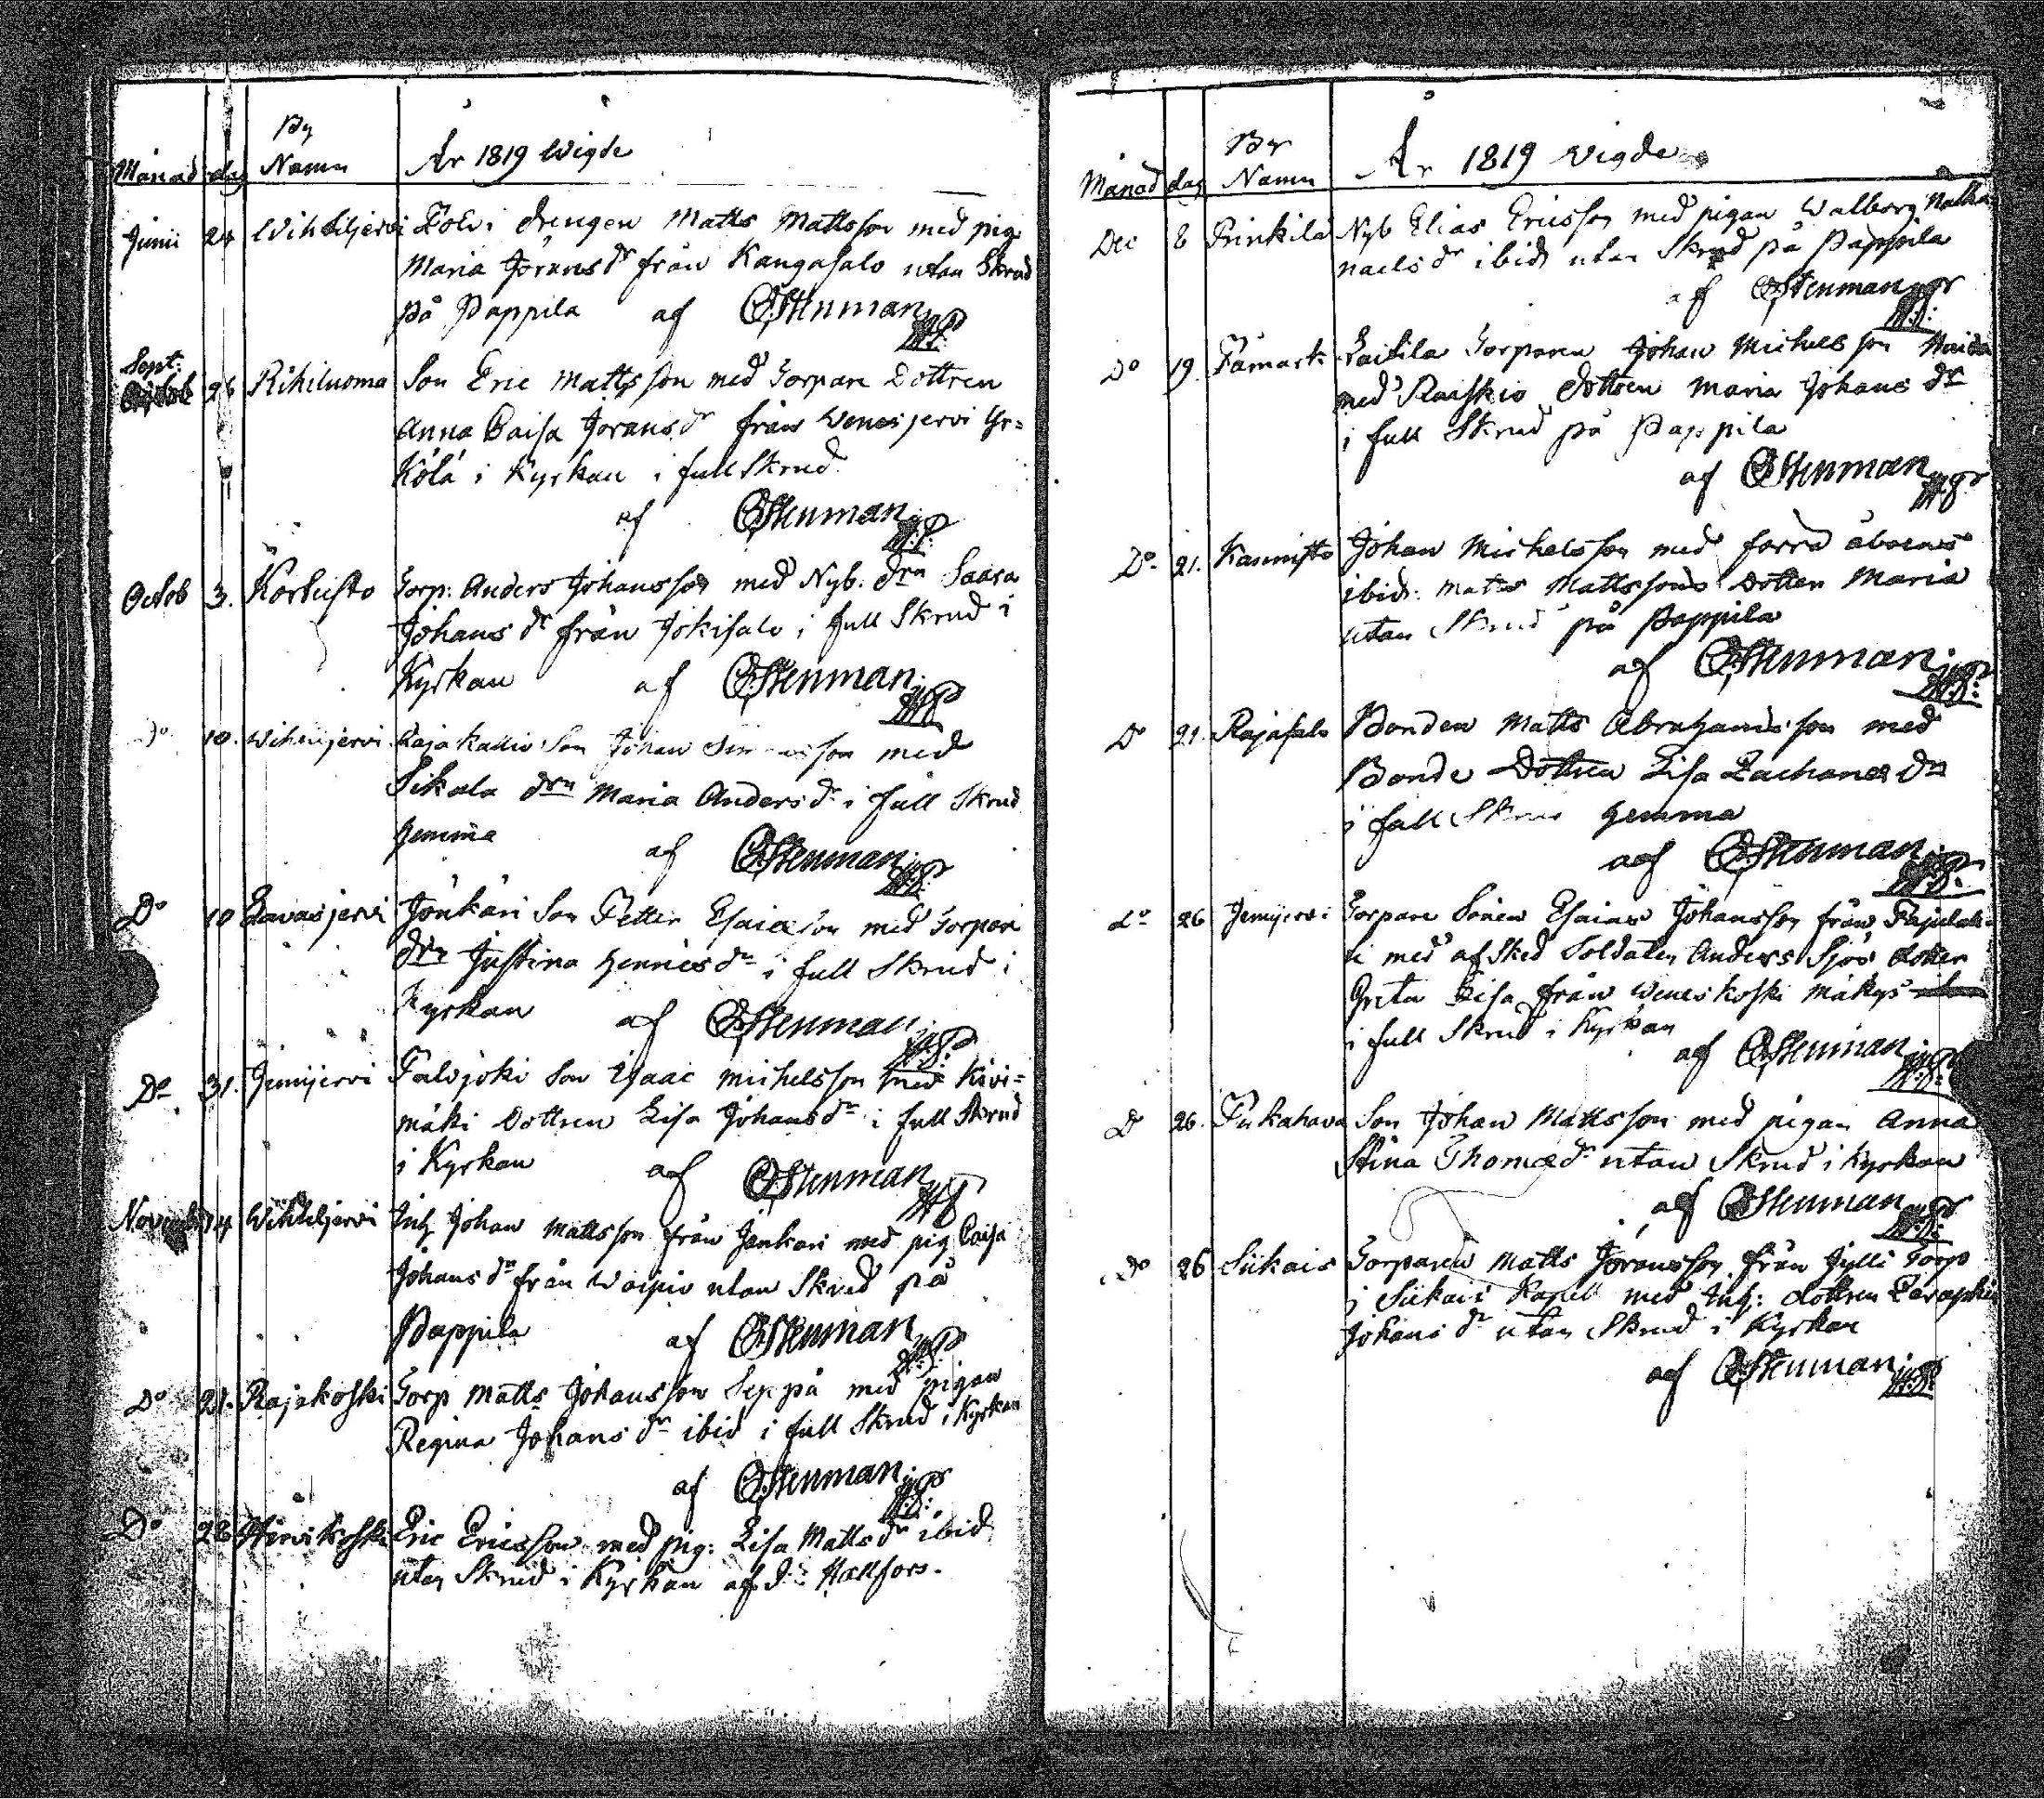 Månad dag By Namn År 1819 Wigde
Junii 24 Wihteljervi drengen Matts Mattsson med pig
Maria Jöransdr från Kangasalo utan Skrud
på Pappila af CStenman
Sept: 26 Rihiluoma Son Eric Mattsson med Torpare Dottren
Anna Caisa Joransdr från Wenesjervi Yr=
Kölä i Kyrkan i full Skrud
af CStenman
Octob 3. Kortisto Torp: Anders Johansson med Nyb. drn Saara
Johans dr från Jokisalo i full Skrud i
Kyrkan af CStenman
Do 10. Rajakallio Son Johan med
Sikala drn Maria Anders dr i full Skrud
hemma af CStenman
Do 10 Lavasjervi Jönkäri Son Petter Esaiasson med Torpare
drn Justina Hennes dr i full Skrud i
Kyrkan af CStenman
Do 31. Jemijervi Palojoki Son Isaac Michelsson med Kivi=
mäki Dottren Lisa Johans dr i full Skrud
i Kyrkan af CStenman
Novemb 14 Wihteljervi Inh Johan Mattsson från Jenkari med pig Caisa
Johans dr från Woipio utan Skrud på
Pappila af CStenman
Do 21. Rajakoski Torp Matts Johansson Seppä med pigan
Regina Johans dr ibid i full Skrud i Kyrkan
af CStenman
Do 28 Hirvikoski Eric Ericsson med pig: Lisa Matts dr ibid
utan Skrud i Kyrkan af Hællfors.
Månad dag By Namn År 1819 Vigde
Dec 8 Prinkilä Nyb Elias Ericsson med pigan Walborg Natha
naels dr ibid utan Skrud på Pappila
af CStenman
Do 19. Påmark Torparen Johan Michelsson
med Raiskio dottren Maria Johans dr
i full Skrud på Pappila
af CStenman
Do 21. Kannisto Johan Michelsson med förra åboens
ibid: Matts Mattssons Dotter Maria
utan Skrud på Pappila
af CStenman
Do 21. Rajasalo Bonden Matts Abrahamsson med
Bonde Dottren Lisa Zacharias dr
i full Skrud hemma
af CStenman
Do 26 Jemijervi Torpare Sonen Esaias Johansson från
med afsked Soldaten Anders Sjös dotter
Greta Lisa från Weneskoski mäkys
i full Skrud i Kyrkan
af CStenman
Do 26. Pukahava Son Johan Mattsson med pigan Anna
Stina Thomæ dr utan Skrud i Kyrkan
af CStenman
Do 26 Siikais Torparen Matts Joransson från Jylli Torp
i Siikais Kapell med Inh: dottren
Johans dr utan Skrud i Kyrkan
af CStenman